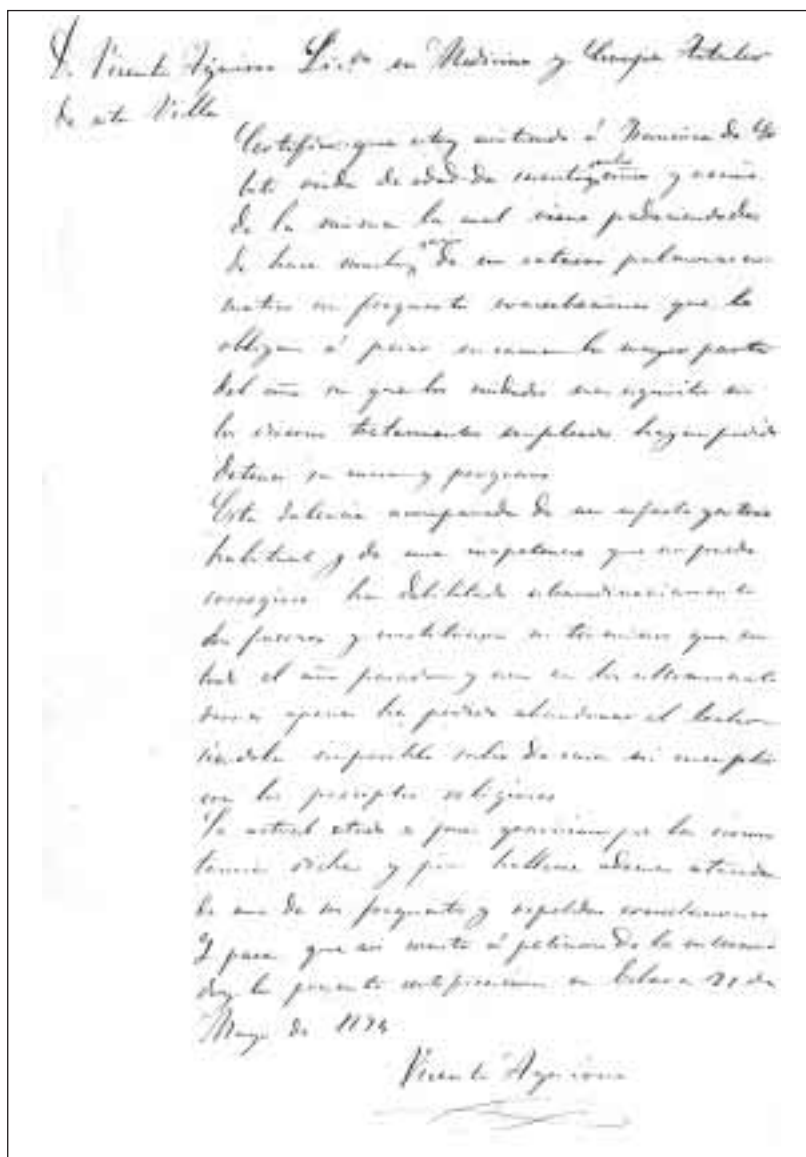 D. Vicente Lic.do en Medicina y Cirugia Titular
de esta Villa
Certifico que estoy asistiendo á Francisca de
viuda de edad de años y vecina
de la misma la cual viene padeciendo des
de hace muchos años de un catarro pulmonar
con frequentes exacerbaciones que la
obligan á pasar en cama la mayor parte
del año sin que los cuidados mas esquisitos ni
los diversos tratamientos empleados hayan podido
detener su marcha y progresos
Esta dolencia acompañada de un
habitual y de una inapetencia que no puede
corregirse ha debilitado extraordinariamente
las fuerzas y constitucion en terminos que en
todo el año pasado y aun en los
apenas ha podido abandonar el lecho
siendola imposible salir de casa ni cumplir
con los preceptos religiosos
Su actual estado es pues gravisimo por las circuns
tancias dichas y por hallarse ademas atacada
de una de sus frequentes y repetidas exacerbaciones
Y para que asi conste á peticion de la interesada
doy la presente certificacion en de
Mayo de 1874
Vicente